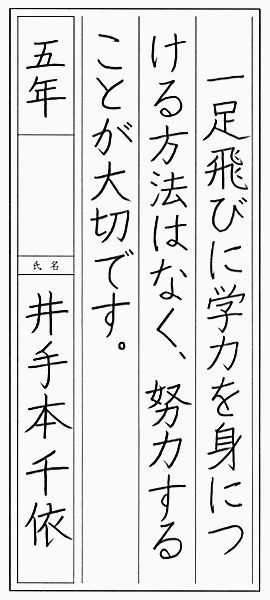 一足飛びに学力を身につ
ける方法はなく、努力する
ことが大切です。
五年
氏名
井手本千依